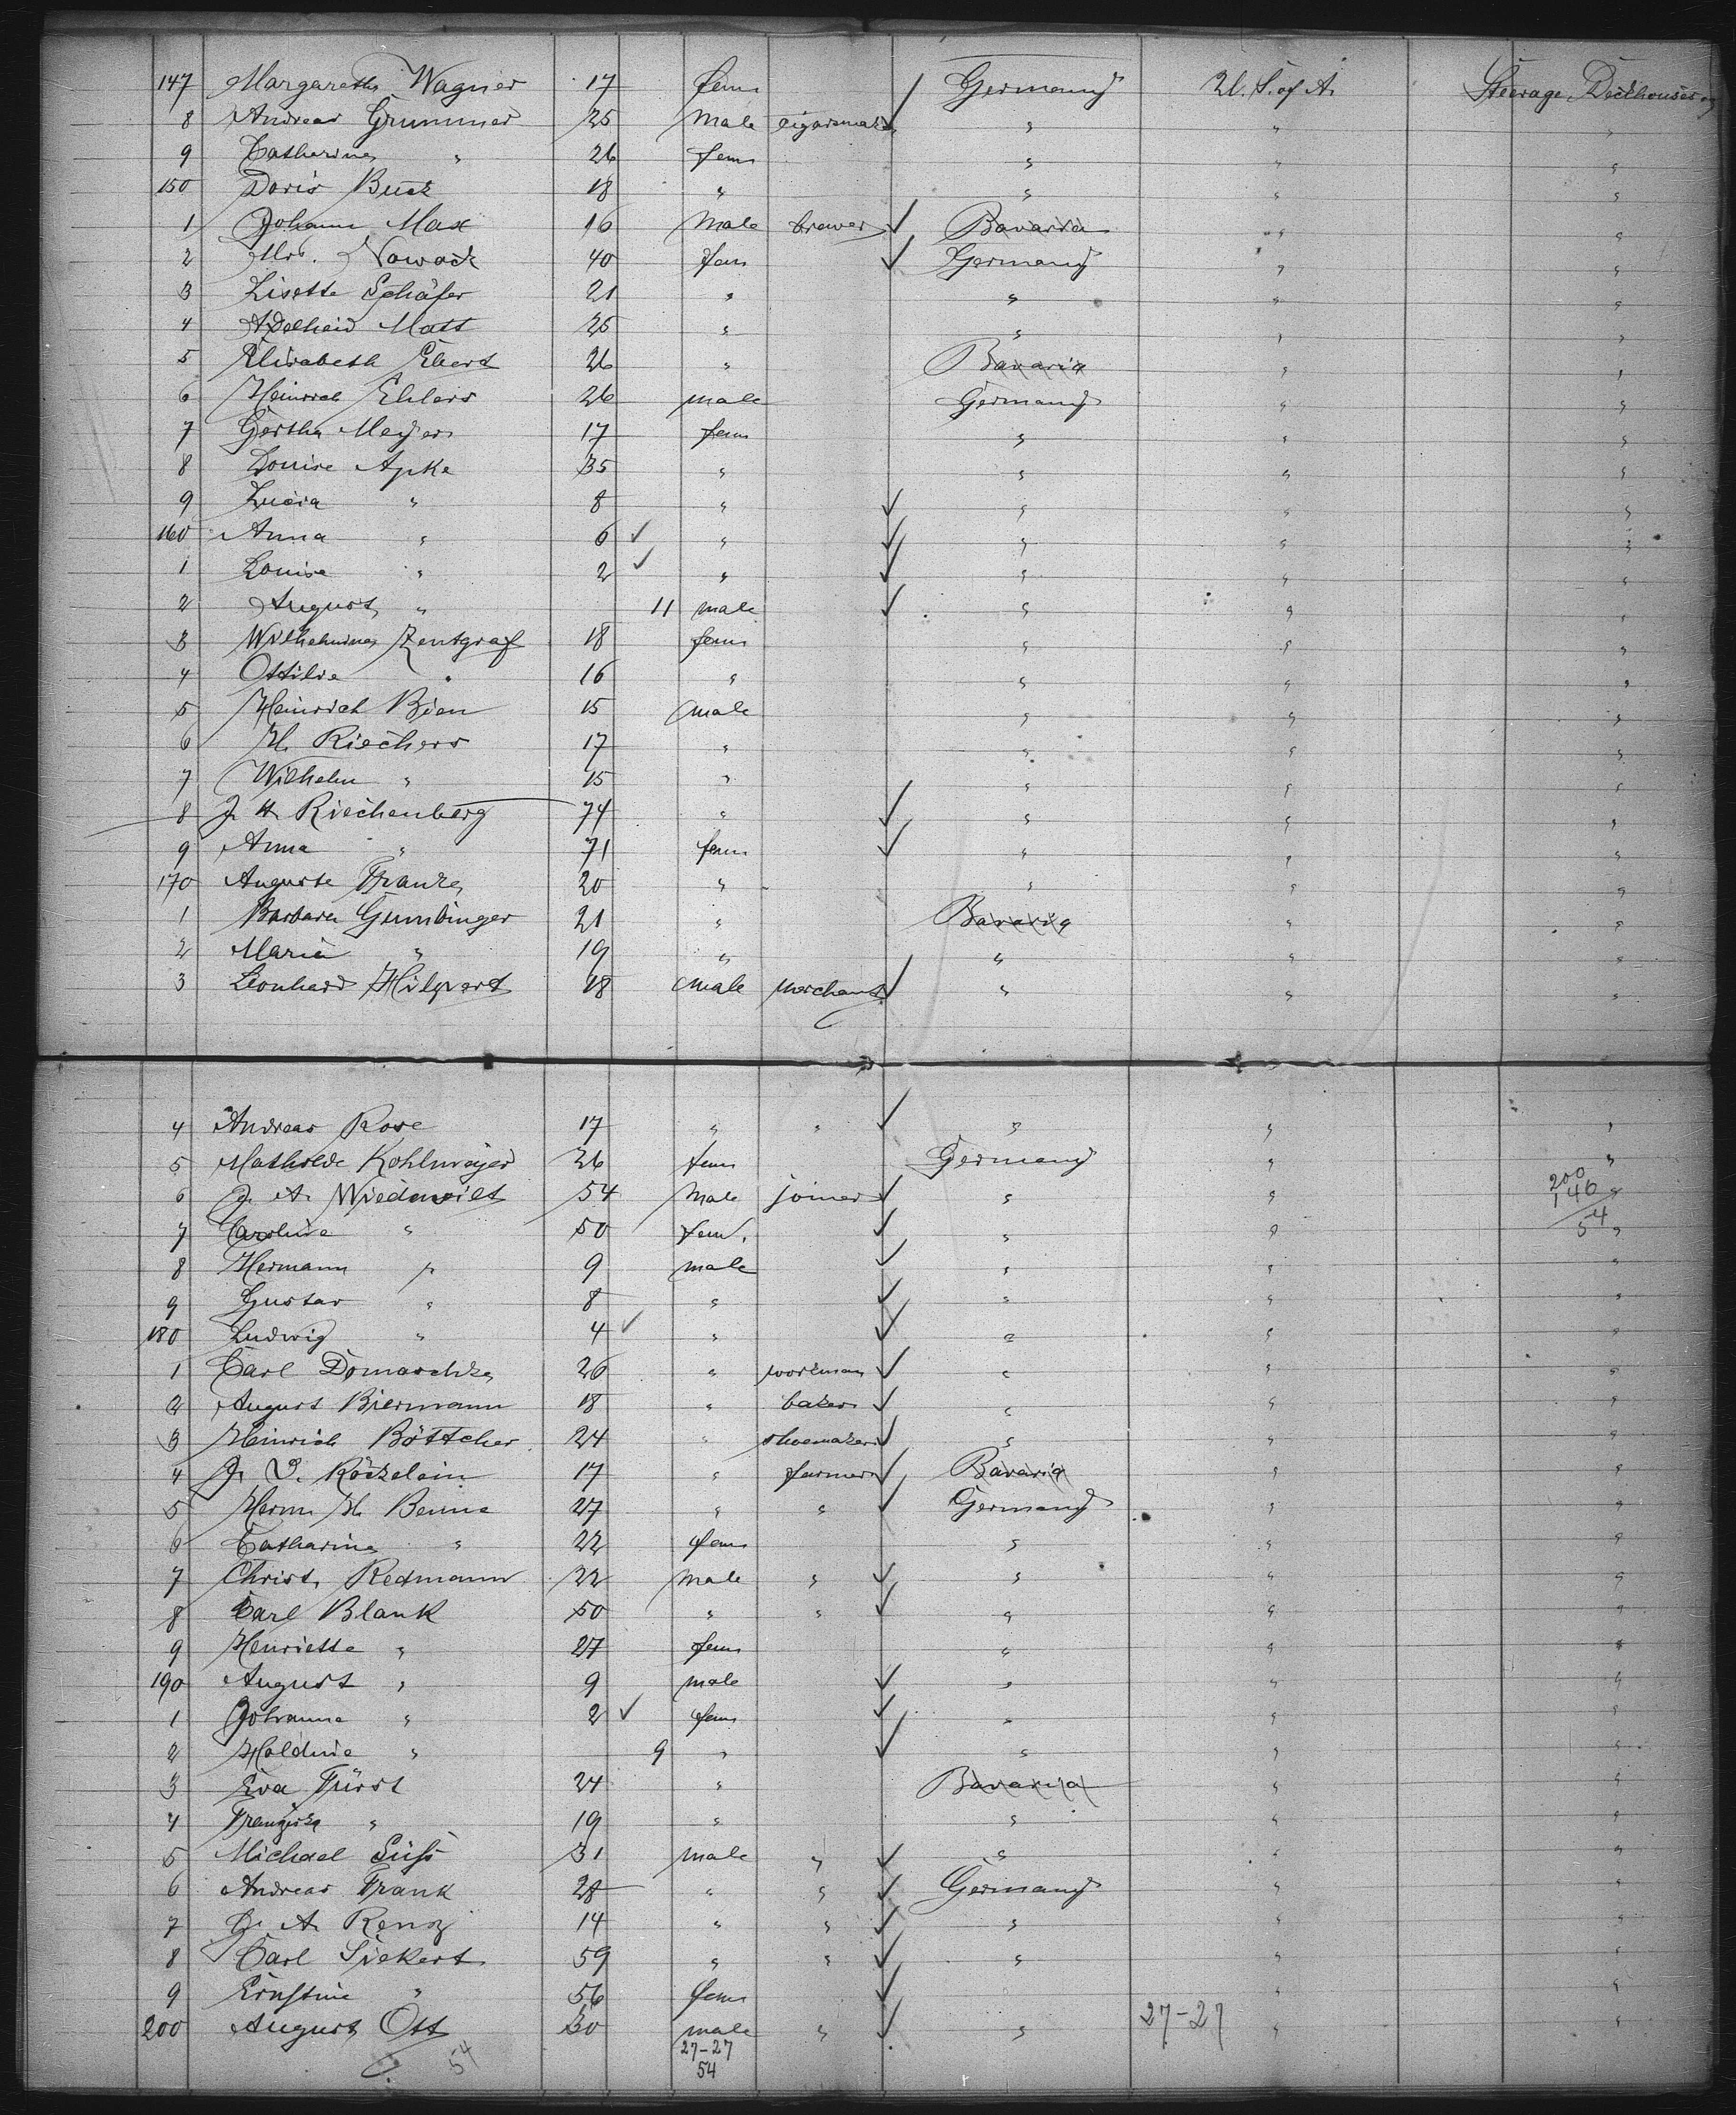 147 Margaretha Wagner 17 fem Germany U. S. of A. Steerage, Deckhouses
8 Andreas Grummer 25 Male cigarmaker " " "
9 Catharina " 26 fem " " "
150 Doris Buck 18 " " " "
1 Johann Max 16 Male brewer Bavaria " "
2 Mrs. Nowack 40 fem Germany " "
3 Lisette Schäfer 21 " " " "
4 Adelheid Matt 25 " " " "
5 Elisabeth Ebert 26 " Bavaria " "
6 Heinrich Ehlers 26 male Germany " "
7 Gertha Meyer 17 fem " " "
8 Louise Apke 35 " " " "
9 Lucia " 8 " " " "
160 Anna " 6 " " " "
1 Louise " 2 " " " "
2 August " 11 male " " "
3 Wilhelmina Zentgraf 18 fem " " "
4 Ottilie " 16 " " " "
5 Heinrich Bien 15 male " " "
6 H. Riechers 17 " " " "
7 Wilhelm " 15 " " " "
8 J. H. Riechenberg 74 " " " "
9 Anna " 71 fem " " "
170 Auguste Franke 20 " " " "
1 Barbara Gumbinger 21 " Bavaria " "
2 Maria " 19 " " " "
3 Leonhard Hilpert 18 male merchant " " "
4 Andreas Rose 17 " " " " "
5 Mathilde Kohlmeyer 26 fem Germany " "
6 J. A. Wiedewilt 54 Male joiner " " " 200
146
7 Caroline " 50 fem. " " " 54
8 Hermann " 9 male " " "
9 Gustav " 8 " " " "
180 Ludwig " 4 " " " "
1 Carl Domaschke 26 " workman " " "
2 August Biermann 18 " baker " " "
3 Heinrich Böttcher 24 " shoemaker " " "
4 J. Röckelein 17 " farmer Bavaria " "
5 Herm. H. Benne 27 " " Germany " "
6 Catharina " 22 fem " " "
7 Christ. Redmann 22 male " " " "
8 Carl Blank 50 " " " " "
9 Henriette " 27 fem " " "
190 August " 9 male " " "
1 Johanna " 2 fem " " "
2 " 9 " " " "
3 Eva Fürst 24 " Bavaria " "
4 Franziska " 19 " " " "
5 Michael Süß 31 male " " " "
6 Andreas Frank 28 " " Germany " "
7 A. Renz 14 " " " " "
8 Carl Siekert 59 " " " " "
9 Ernstine " 56 fem " "
200 August Ott 30 male " " 27-27 " "
54 27-27
54